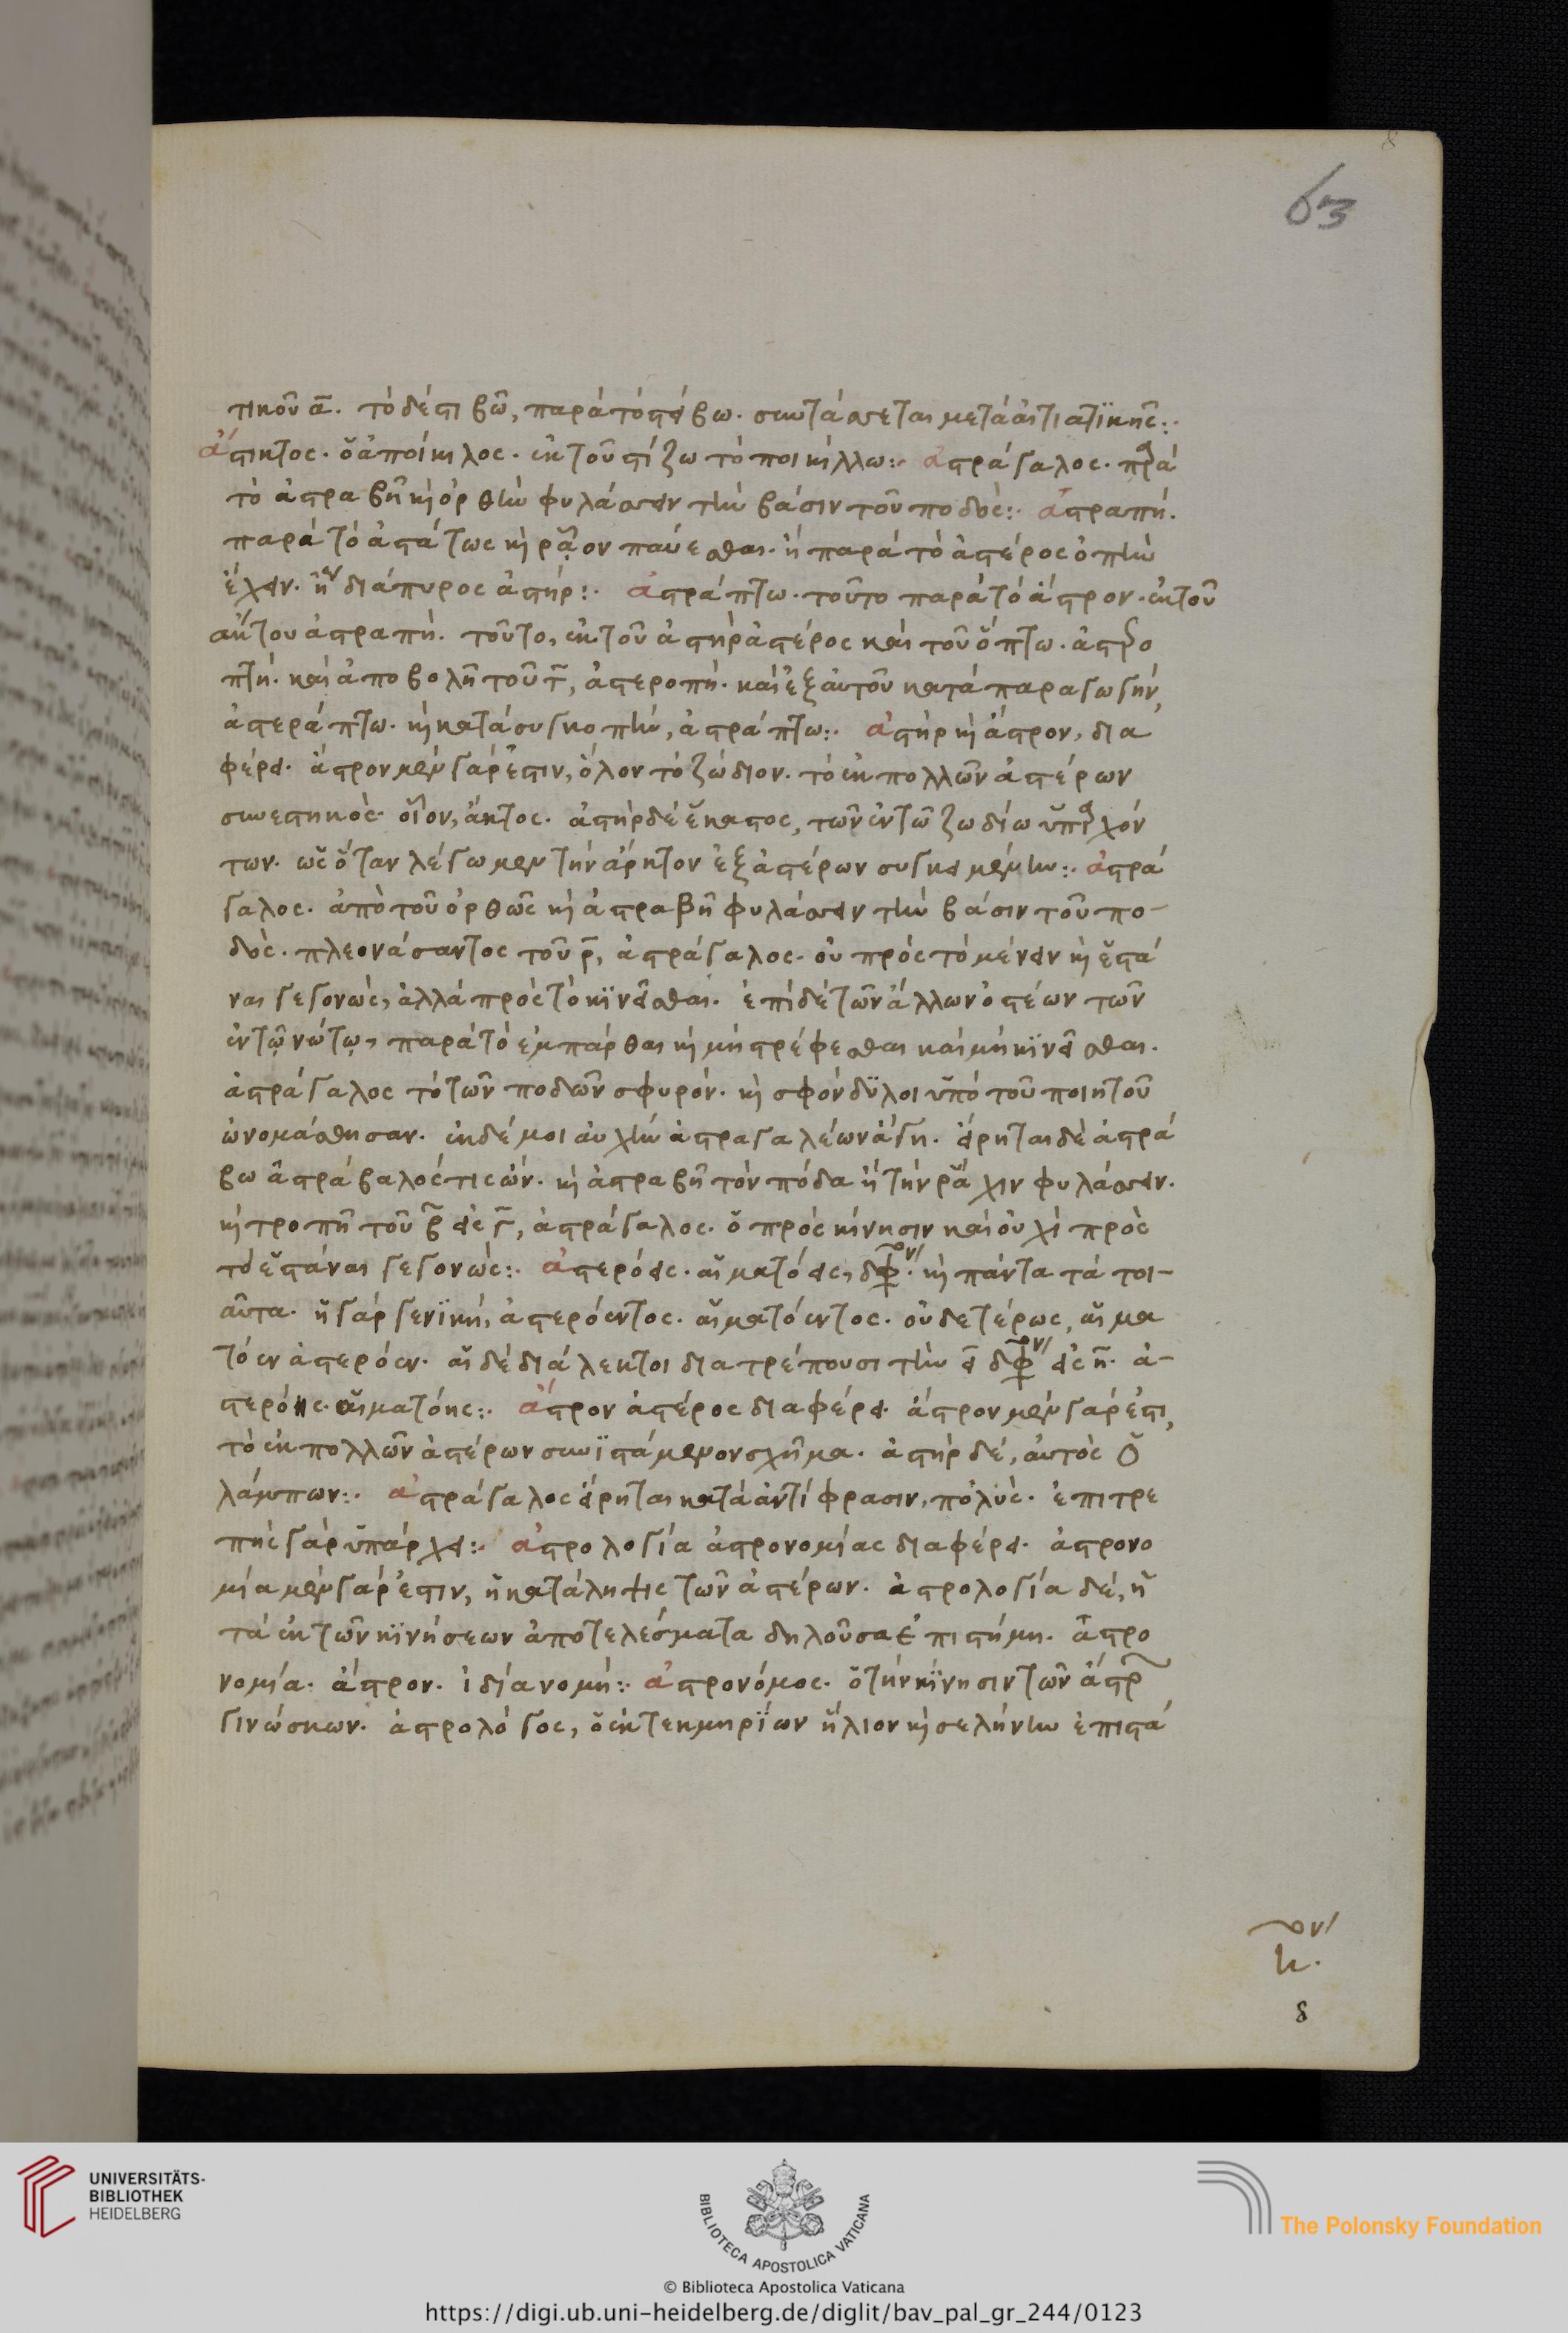 63
τικοῦ α̅. τὸ δέ στιβῶ, παρὰ τὸ στείβω. συντάσσεται μετὰ αἰτιατϊκῆς:·
ἄστικτος. ὁ ἀποίκιλος. ἐκ τοῦ στίζω τὸ ποικίλλω:· ἀστράγαλος. παρὰ
τὸ ἀστραβῆ κὶ ὀρθὴν φυλάσσειν τὴν βάσιν τοῦ ποδός:· ἀστραπή.
παρὰ τὸ ἀστάτως κὶ ῥᾷον παύεσθαι. ἢ παρὰ τὸ ἀστέρος ὀπτὴν
ἔχειν. ἢ διάπυρος ἀστήρ:· ἀστράπτω. τοῦτο παρὰ τὸ ἄστρον. ἐκ τοῦ
ἀστραπή. τοῦτο, ἐκ τοῦ ἀστὴρ ἀστέρος καὶ τοῦ ὄπτω. ἀστερο
πτή. καὶ ἀποβολῆ τοῦ τ̅, ἀστεροπή. καὶ ἐξ αὐτοῦ κατὰ παραγωγήν,
ἀστεράπτω. κὶ κατὰ συγκοπὴν, ἀστράπτω:· ἀστὴρ κὶ ἄστρον, δια
φέρει. ἄστρον μὲν γάρ ἐστιν, ὅλον τὸ ζώδιον. τὸ ἐκ πολλῶν ἀστέρων
συνεστηκὸς. οἷον, ἄκτος. ἀστὴρ δὲ ἕκαστος, τῶν ἐν τῶ ζωδίω ὑπαρχόν
των. ὡς ὅταν λέγωμεν τὴν ἄρκτον ἐξ ἀστέρων συγκειμένην:· ἀστρά
γαλος. ἀπὸ τοῦ ὀρθῶς κὶ ἀστραβῆ φυλάσσειν τὴν βάσιν τοῦ πο-
δός. πλεονάσαντος τοῦ ρ̅, ἀστράγαλος. οὐ πρὸς τὸ μένειν κὶ ἑστά
ναι γεγονώς, ἀλλὰ πρὸς τὸ κϊνεῖσθαι. ἐπὶ δὲ τῶν ἄλλων ὀστέων τῶν
ἐν τῷ νώτῳ, παρὰ τὸ ἐμπάρθαι κὶ μὴ στρέφεσθαι καὶ μὴ κϊνεῖσθαι.
ἀστράγαλος τὸ τῶν ποδῶν σφυρόν. κὶ σφόνδϋλοι ὑπὸ τοῦ ποιητοῦ
ὠνομάσθησαν. ἐκ δέ μοι αὐχὴν ἀστραγαλέων ἄγη. εἴρηται δὲ ἀστρά
βω ἀστράβαλος τὶς ὤν. κὶ ἀστραβῆ τὸν πόδα ἢ τὴν ῥάχιν φυλάσσειν.
κὶ τροπῆ τοῦ β̅ εἰς γ̅, ἀστράγαλος. ὁ πρὸς κίνησιν καὶ οὐχὶ πρὸς
τὸ ἑστάναι γεγονὼς:· ἀστερόεις. αἱματόεις, δφ. κὶ πάντα τὰ τοι-
αῦτα. ἡ γὰρ γενϊκή, ἀστερόεντος. αἱματόεντος. οὐδετέρως, αἱμα
τόεν ἀστερόεν. αἱ δὲ διάλεκτοι διατρέπουσι τὴν ει δφ εἰς η̅. ἀ-
στερόης. αἱματόης:· ἄστρον ἀστέρος διαφέρει. ἄστρον μὲν γάρ ἐστι,
τὸ ἐκ πολλῶν ἀστέρων συνϊστάμενον σχῆμα. ἀστὴρ δὲ, αὐτὸς ὁ
λάμπων:· ἀστράγαλος εἴρηται κατὰ ἀντίφρασιν, πολὺς. ἐπιτρε
πὴς γὰρ ὑπάρχει:· ἀστρολογία ἀστρονομίας διαφέρει. ἀστρονο
μία μὲν γάρ ἐστιν, ἡ κατάληψις τῶν ἀστέρων. ἀστρολογία δὲ, ἡ
τὰ ἐκ τῶν κϊνήσεων ἀποτελέσματα δηλοῦσα ἐπιστήμη. ἀστρο
νομία. ἄστρον. ἰδία νομή:· ἀστρονόμος. ὁ τὴν κϊνησιν τῶν ἄστρων
γινώσκων. ἀστρολόγος, ὁ ἐκ τεκμηρϊων ἥλιον κὶ σελήνην ἐπιστά
8
UNIVERSITÄTS-
BIBLIOTHEK
HEIDELBERG
BIBLIOTECA APOSTOLICA VATICANA
The Polonsky Foundation
© Biblioteca Apostolica Vaticana
https://digi.ub.uni-heidelberg.de/diglit/bav_pal_gr_244/0123